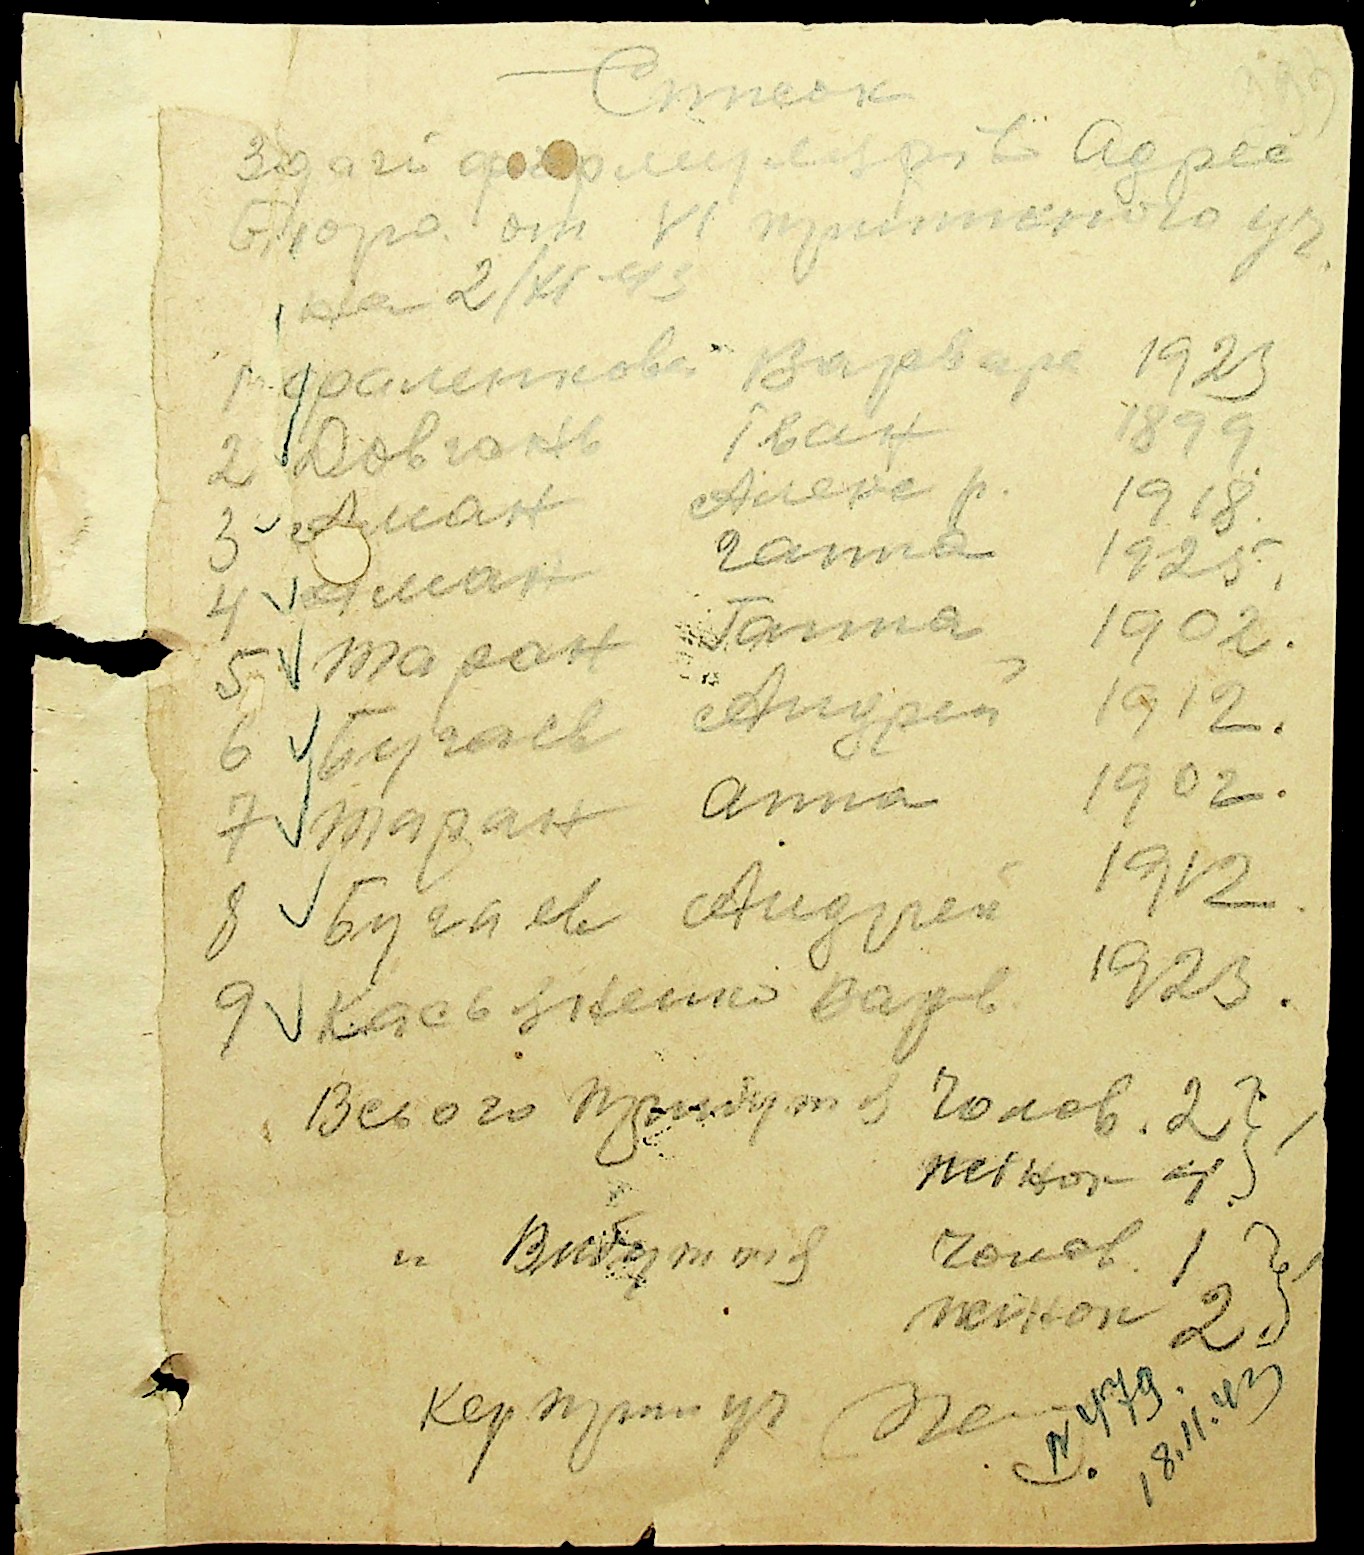 Список
Здачі формулярів Адрес
бюро от VI приписного уч.
на 2/XI-43
1 Фаленкова Варвара 1923
2 Довгань Іван 1899
3 Аман Алекс р. 1918.
4 Аман Ганна 1925.
5 Таран Ганна 1902.
6 Бугаєв Андрей 1912.
7 Таран Анна 1902.
8 Бугаєв Андрей 1912.
9 Касьяненко Варв 1923.
Всього прибутів Чолов. 2
жінок 4.
" Вибуттів Чолов. 1
жінок 2.
Кер прип уч
N 479.
18.11.43